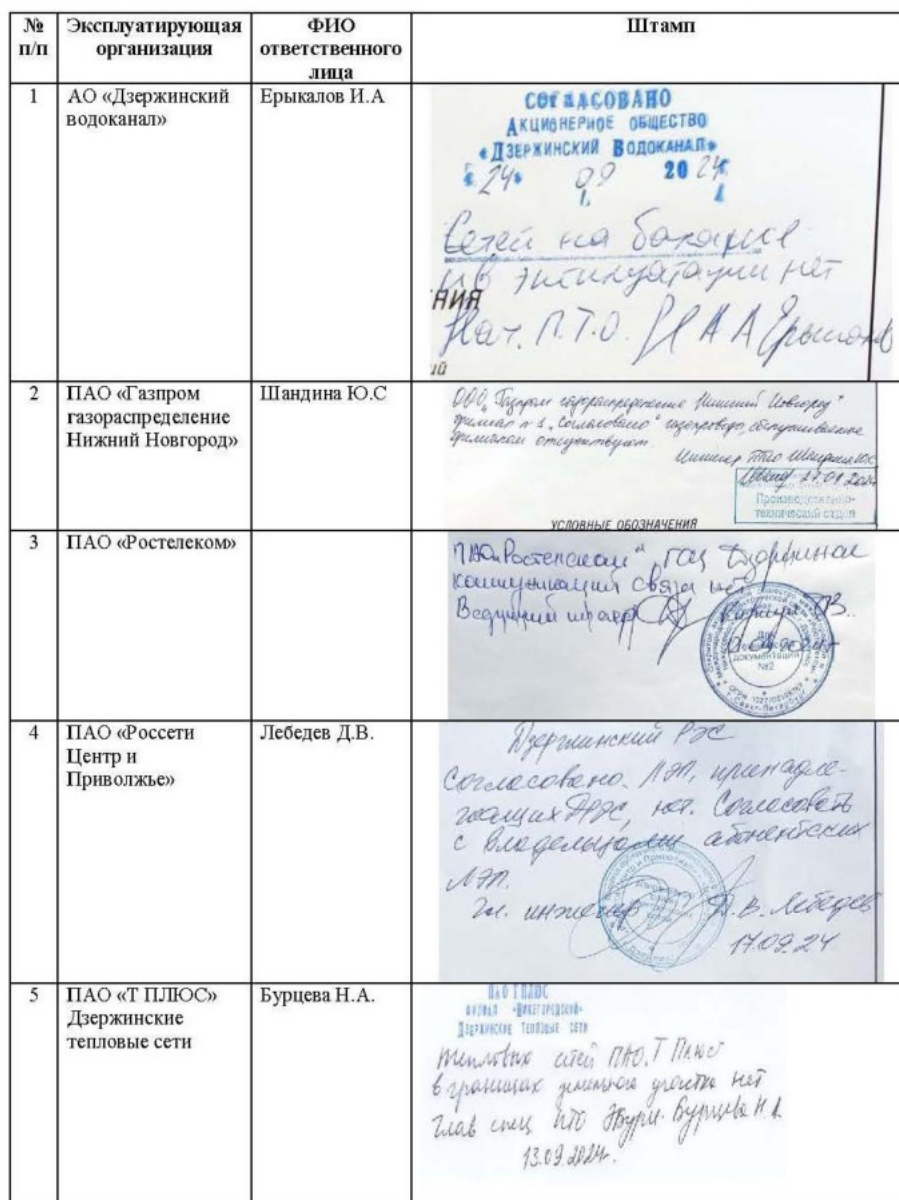 № п/п
Эксплуатирующая организация
ФИО ответственного лица
Штамп
1
АО «Дзержинский
водоканал»
Ерыкалов И.А
СОГЛАСОВАНО
АКЦИОНЕРНОЕ ОБЩЕСТВО
«ДЗЕРЖИНСКИЙ ВОДОКАНАЛ»
«24» 09 2024
Сетей на балансе
и в эксплуатации нет
НИЯ
Нач. П.Т.О.
2
ПАО «Газпром
газораспределение
Нижний Новгород»
Шандина Ю.С
ООО „Газпром газораспределение Нижний Новгород"
филиал „Согласовано" газопроводы, обслуживаемые
филиалом отсутствуют.
Инженер ПТО Шандина Ю.С
27.09.2024
Производственно-
технический отдел
УСЛОВНЫЕ ОБОЗНАЧЕНИЯ
3
ПАО «Ростелеком»
ПАО „Ростелеком"
коммуникаций связи нет
Ведущий инженер
документации
№2
4
ПАО «Россети
Центр и
Приволжье»
Лебедев Д.В.
Дзержинский РЭС
Согласовано. ЛЭП, принадле-
жащих ДРЭС, нет. Согласовать
с владельцами абонентских
ЛЭП.
Гл. инженер Д.В. Лебедев
17.09.24
5
ПАО «Т ПЛЮС»
Дзержинские
тепловые сети
Бурцева Н.А.
ПАО Т ПЛЮС
ФИЛИАЛ «НИЖЕГОРОДСКИЙ»
ДЗЕРЖИНСКИЕ ТЕПЛОВЫЕ СЕТИ
Тепловых сетей ПАО „Т Плюс
в границах земельного участка нет
Глав спец ПТО Бурцева Н.А.
13.09.2024г.